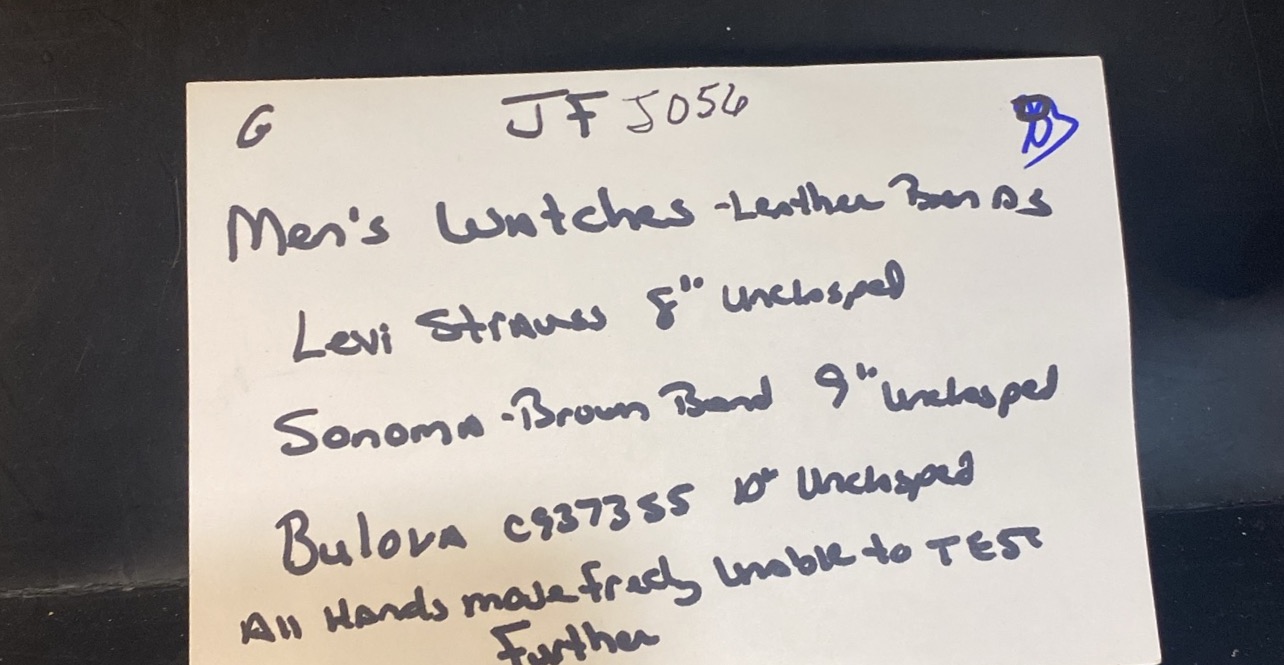 G JFJ056
Men's Watches - Leather Bands
Levi Strauss 8" Unclasped
Sonoma - Brown Band 9" Unclasped
Bulova C937355 10" Unclasped
All Hands move freely Unable to TEST
Further